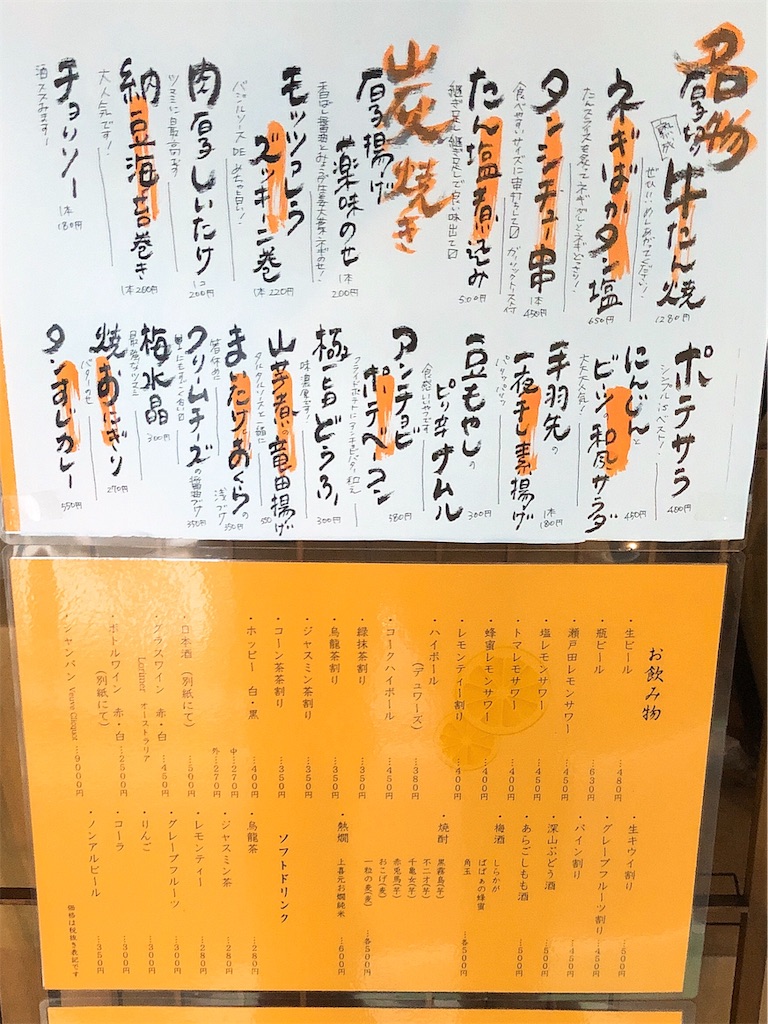 名物
厚切り牛たん焼
熟成
ぜひいめしあがってください!
1280円
ネギばかタン塩
たんスライスを炙ってネギがしとネギどっさり!
650円
タンシチュー串
食べやすいサイズに串打ちして
ガーリックトースト付
1本
450円
たん塩煮込み
継ぎ足し継ぎ足しで旨い味出て
500円
炭焼き
厚揚げ
薬味のせ
香ばし醤油とみょうが生姜大葉ネギのせ!
1本
200円
モッツァレラ
ズッキーニ巻
バジルソースDEめちゃ旨い!
1本220円
肉厚しいたけ
ツマミに最高です
1コ
200円
納豆海苔巻き
大人気です!
1本260円
チョリソー
酒ススみますー
1本
180円
ポテサラ
シンプルisベスト!
480円
にんじんと
ビーツの和風サラダ
大大大人気!
450円
手羽先の
一夜干し素揚げ
パリッパリッ
1本
180円
豆もやしの
ピリ辛ナムル
食感いいやつです
300円
アンチョビ
ポテベーコン
フライドポテトにアンチョビバター和え
580円
極旨どうふ
味濃厚です!
300円
山芋煮の竜田揚げ
タルタルソースと一緒に
500
まいたけとおくらの
浅づけ
箸休めに
350円
クリームチーズの醤油づけ
350円
梅水晶
最強なツマミ
300円
焼おにぎり
バターのせ
270円
タンすじカレー
550円
お飲み物
・生ビール …480円
・瓶ビール …630円
・瀬戸田レモンサワー …450円
・塩レモンサワー …450円
・トマレモサワー …400円
・蜂蜜レモンサワー …400円
・レモンティー割り …400円
・ハイボール
(デュワーズ) …380円
・コークハイボール …450円
・緑抹茶割り …350円
・烏龍茶割り …350円
・ジャスミン茶割り …350円
・コーン茶茶割り …350円
・ホッピー 白・黒 …400円
中…270円
外…270円
・日本酒(別紙にて) …500円
・グラスワイン 赤・白 …450円
Lorimer オーストラリア
・ボトルワイン 赤・白 …2500円
(別紙にて)
・シャンパン Veuve Clicquot …9000円
・生キウイ割り …500円
・グレープフルーツ割り …450円
・パイン割り …450円
・深山ぶどう酒 …500円
・あらごしもも酒 …500円
・梅酒
しらかが
ばばあの蜂蜜
角玉 …各500円
・焼酎
黒霧島(芋)
不二才(芋)
千亀女(芋)
赤兎馬(芋)
おこげ(麦)
一粒の麦(麦) …各500円
・熱燗
上喜元お燗純米 …600円
ソフトドリンク
・烏龍茶 …280円
・ジャスミン茶 …280円
・レモンティー …280円
・グレープフルーツ …300円
・りんご …300円
・コーラ …300円
・ノンアルビール …350円
価格は税抜き表記です